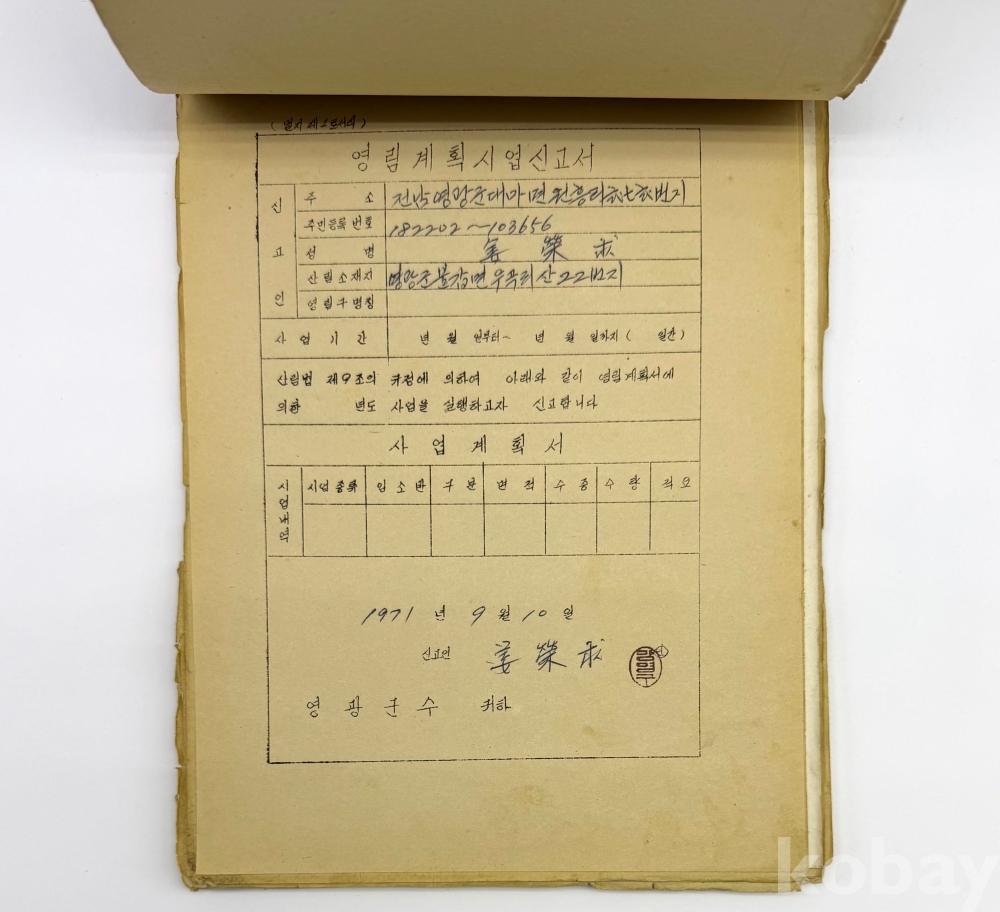 (별지 제2호서식)
영림계획사업신고서
신고인
주소 전남영광군대마면원흥리 번지
주민등록번호 182202~103656
성명 姜榮求
산림소재지 영광군불갑면우곡리산22번지
영림구명칭
사업기간 년 월 일부터~ 년 월 일까지( 일간)
산림법 제9조의 규정에 의하여 아래와 같이 영림계획서에
의한 년도 사업을 실행하고자 신고합니다
사업계획서
사업내역
시업종류 임소반 구분 면적 수종 수량 적요
1971 년 9 월 10 일
신고인 姜榮求
영광군수 귀하
kobay